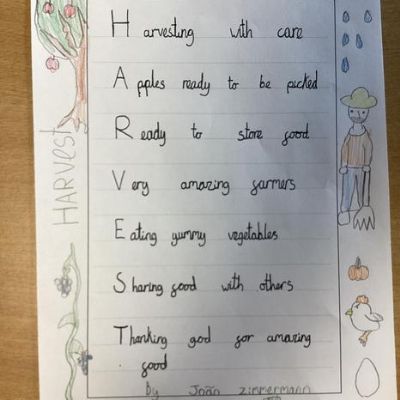 HARVEST
Harvesting with care
Apples ready to be picked
Ready to store food
Very amazing farmers
Eating yummy vegetables
Sharing food with others
Thanking god for amazing
food
by João zimmermann